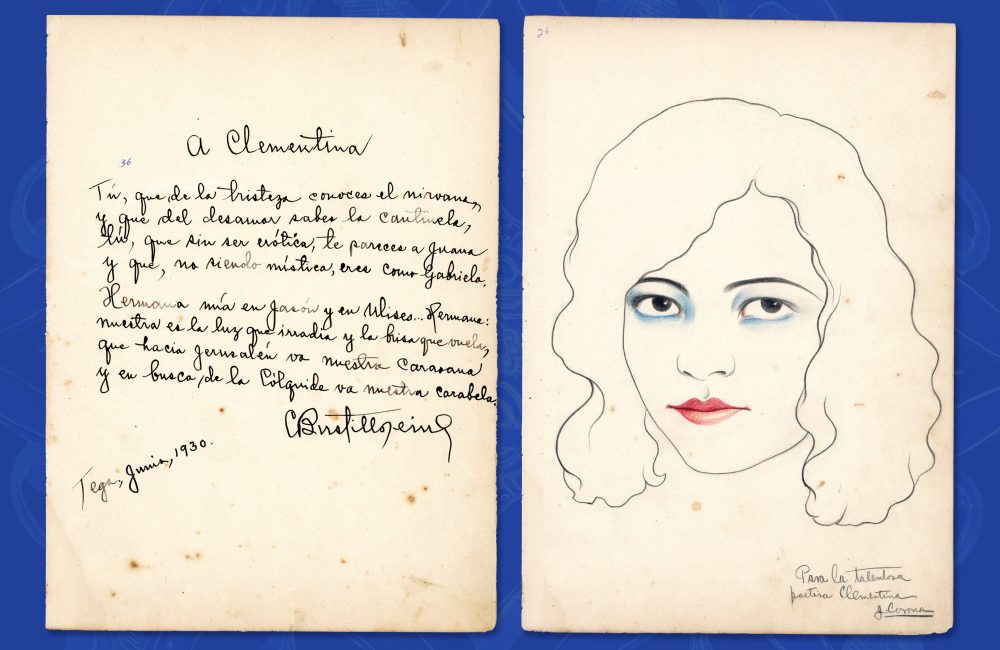 A Clementina
36
Tú, que de la tristeza conoces el nirvana,
y que del desamor sabes la cantinela,
tú, que sin ser erótica, te pareces a Juana
y que, no siendo mística, eres como Gabriela.
Hermana mía en Jasón y en Ulises... Hermana:
nuestra es la luz que irradia y la brisa que vuela,
que hacia Jerusalén va nuestra caravana
y en busca de la Cólquide va nuestra carabela.
Tega, Junio, 1930.
26
Para la talentosa
poetisa Clementina
J. Corona